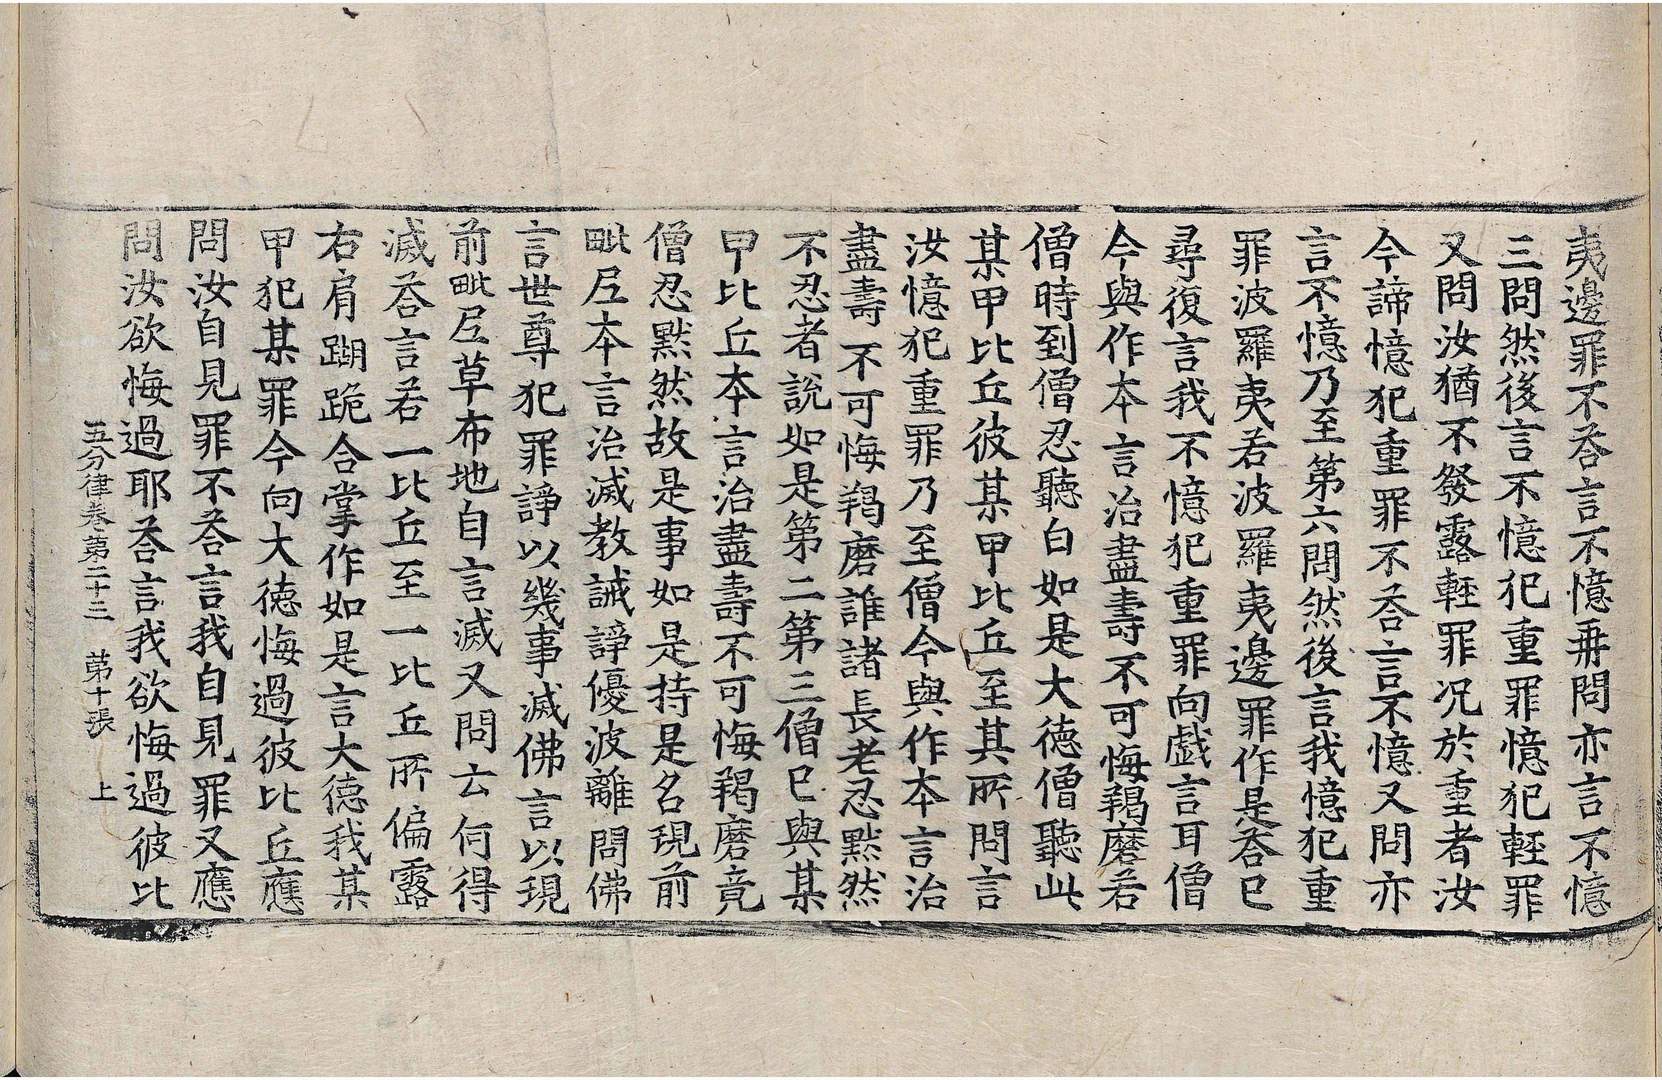 夷邊罪不荅言不憶再問亦言不憶
三問然後言不憶犯重罪憶犯輕罪
又問汝猶不發露輕罪况於重者汝
今諦憶犯重罪不荅言不憶又問亦
言不憶乃至第六問然後言我憶犯重
罪波羅夷若波羅夷邊罪作是荅已
尋復言我不憶犯重罪向戱言耳僧
今與作本言治盡壽不可悔羯磨若
僧時到僧忍聽白如是大德僧聽此
某甲比丘彼某甲比丘至其所問言
汝憶犯重罪乃至僧今與作本言治
盡壽不可悔羯磨誰諸長老忍黙然
不忍者說如是第二第三僧已與某
甲比丘本言治盡壽不可悔羯磨竟
僧忍黙然故是事如是持是名現前
毗尼本言治滅教誡諍優波離問佛
言世尊犯罪諍以幾事滅佛言以現
前毗尼草布地自言滅又問云何得
滅荅言若一比丘至一比丘所偏露
右肩䠒跪合掌作如是言大德我某
甲犯某罪今向大德悔過彼比丘應
問汝自見罪不荅言我自見罪又應
問汝欲悔過耶荅言我欲悔過彼比
五分律卷第二十三 第十張 上